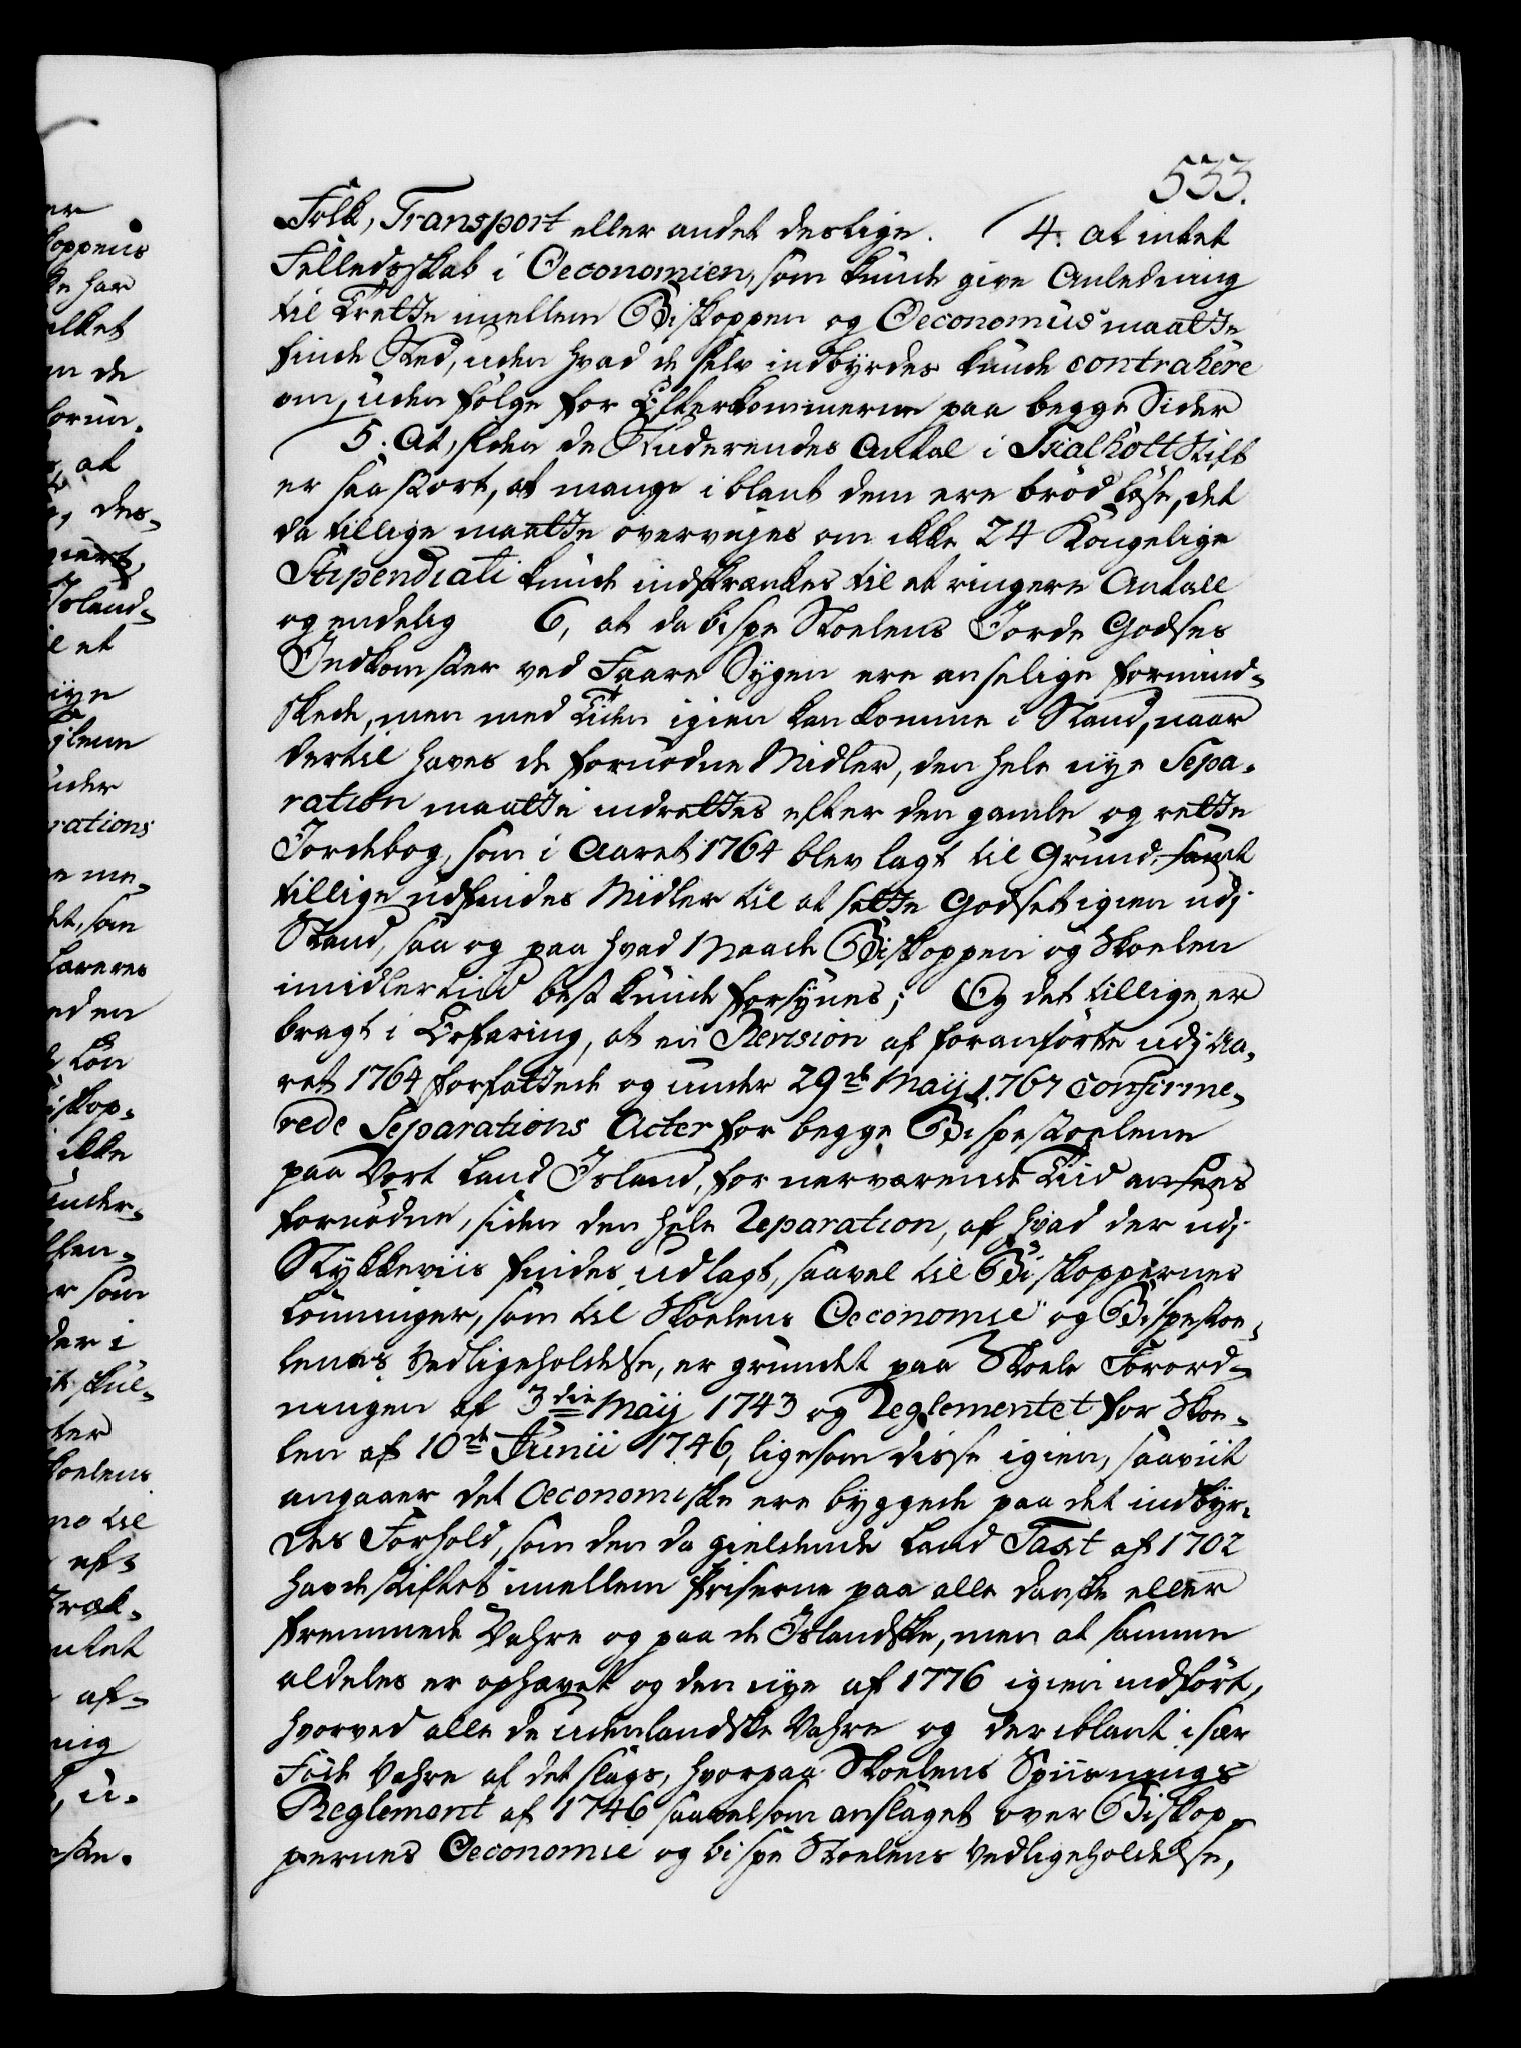 533.
Folk, Transport eller andet deslige. 4. at intet
Felledsskab i Oeconomien, som kunde give Anledning
til Trætte imellem Biskoppen og Oeconomus maatte
finde Sted, uden hvad de selv indbyrdes kunde contrahere
om, uden følge for Efterkommerne paa begge Sider
5. At, siden de Studerendes Antal i Skalholt Stift
er saa stort, at mange iblant dem ere brødløse, det
da tillige maatte overvejes om ikke 24 Kongelige
Stipendiati kunde indskrænkes til et ringere Antall
og endelig 6, at da bispe Stoelens Jorde Godses
Indkomster ved Faare Sygen ere anselige formind-
skede, men med Tiden igien kan komme i Stand, naar
dertil haves de fornødne Midler, den hele nye Sepa-
ration maatte indrettes efter den gamle og rette
Jordebog, som i Aaret 1764 blev lagt til Grund, samt
tillige udfindes Midler til at sette Godset igien udj
Stand, saa og paa hvad Maade Biskoppen og Skoelen
imidlertiid best kunde forsynes; Og det tillige er
bragt i Erfaring, at en Revision af foranførte udj Aa-
ret 1764 forfattede og under 29de Maij 1767 confirme-
rede Separations Acter for begge Bispestoelene
paa Vort Land Island, for nærværende Tiid ansees
fornødne, siden den hele Reparation, af hvad der udj
Stykkeviis findes udlagt, saavel til Biskoppernes
Lønninger, som til Skoelens Oeconomie og Bispestoe-
lenes Vedligeholdelse, er grundet paa Skole Forord-
ningen af 3die Maij 1743 og Reglementet for Skoe-
len af 10de Junii 1746, ligesom disse igien, saaviit
angaaer det Oeconomiske ere byggede paa det indbyr-
des Forhold, som den da gieldende Land Taxt af 1702
havde stiftet imellem Priserne paa alle danske eller
fremmede Vahre og paa de Islandske, men at samme
aldeles er ophævet og den nye af 1776 igien indført,
hvorved alle de udenlandske Vahre og deriblant især
Føde Vahre af det slags, hvorpaa Skoelens Spiisnings
Reglement af 1746 saavelsom anslaget over Biskop-
pernes Oeconomie og bispe Stoelens Vedligeholdelse,